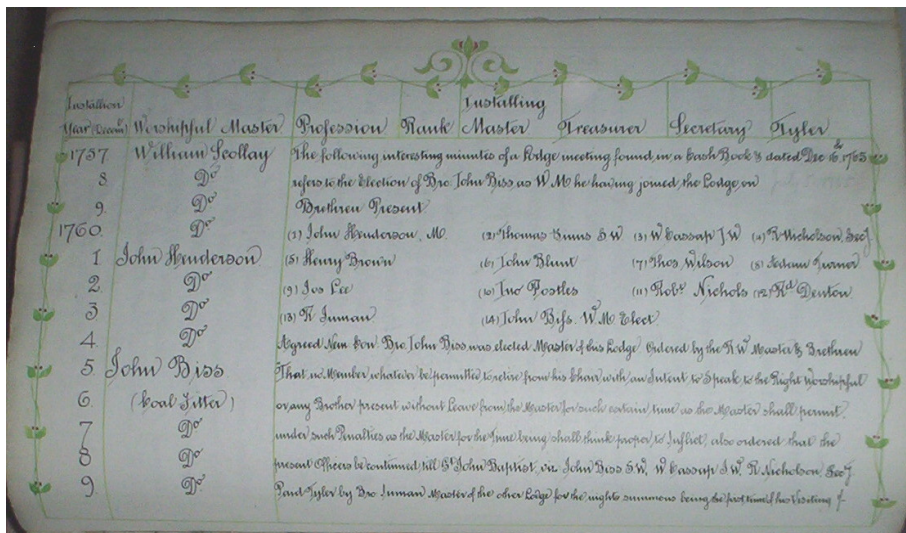 Installing
Installion
Year (Decem^r) Worshipful Master Profession Rank Master Treasurer Secretary Tyler
1757 William Scollay The following interesting minutes of a Lodge meeting found in a Cash Book & dated Dec 16th 1765
8 Do refers to the Election of Bro. John Biss, as W M he having joined the Lodge on
9 Do Brethren Present
1760 Do (1) John Henderson, M. (2) Thomas S W (3) W Cassap J W (4) R Nicholson, Secy
1 John Henderson (5) Henry Brown (6) John Blunt (7) Thos. Wilson (8) Turner
2 Do (9) Jos Lee (10) Jno Postles (11) Robt Nichols (12) Rd Denton
3 Do (13) R Inman (14) John Biss. W M Elect.
4 Do Agreed Nem Con Bro. John Biss, was elected Master of this Lodge Ordered by the R W Master & Brethren
5 John Biss That no Member whatever be permitted to retire from his Chair with an Intent to Speak to the Right Worshipful
6 (Coal Fitter) or any Brother present without Leave from the Master for such certain time as the Master shall permit,
7 Do under such Penalties as the Master for the time being shall think proper to Inflict, also ordered that the
8 Do present Officers be continued till St John Baptist, viz John Biss S W, W Cassap J W, R Nicholson, Secy
9 Do Paid Tyler by Bro. Inman Master of the other Lodge for the nights summons being the first time of his Visiting